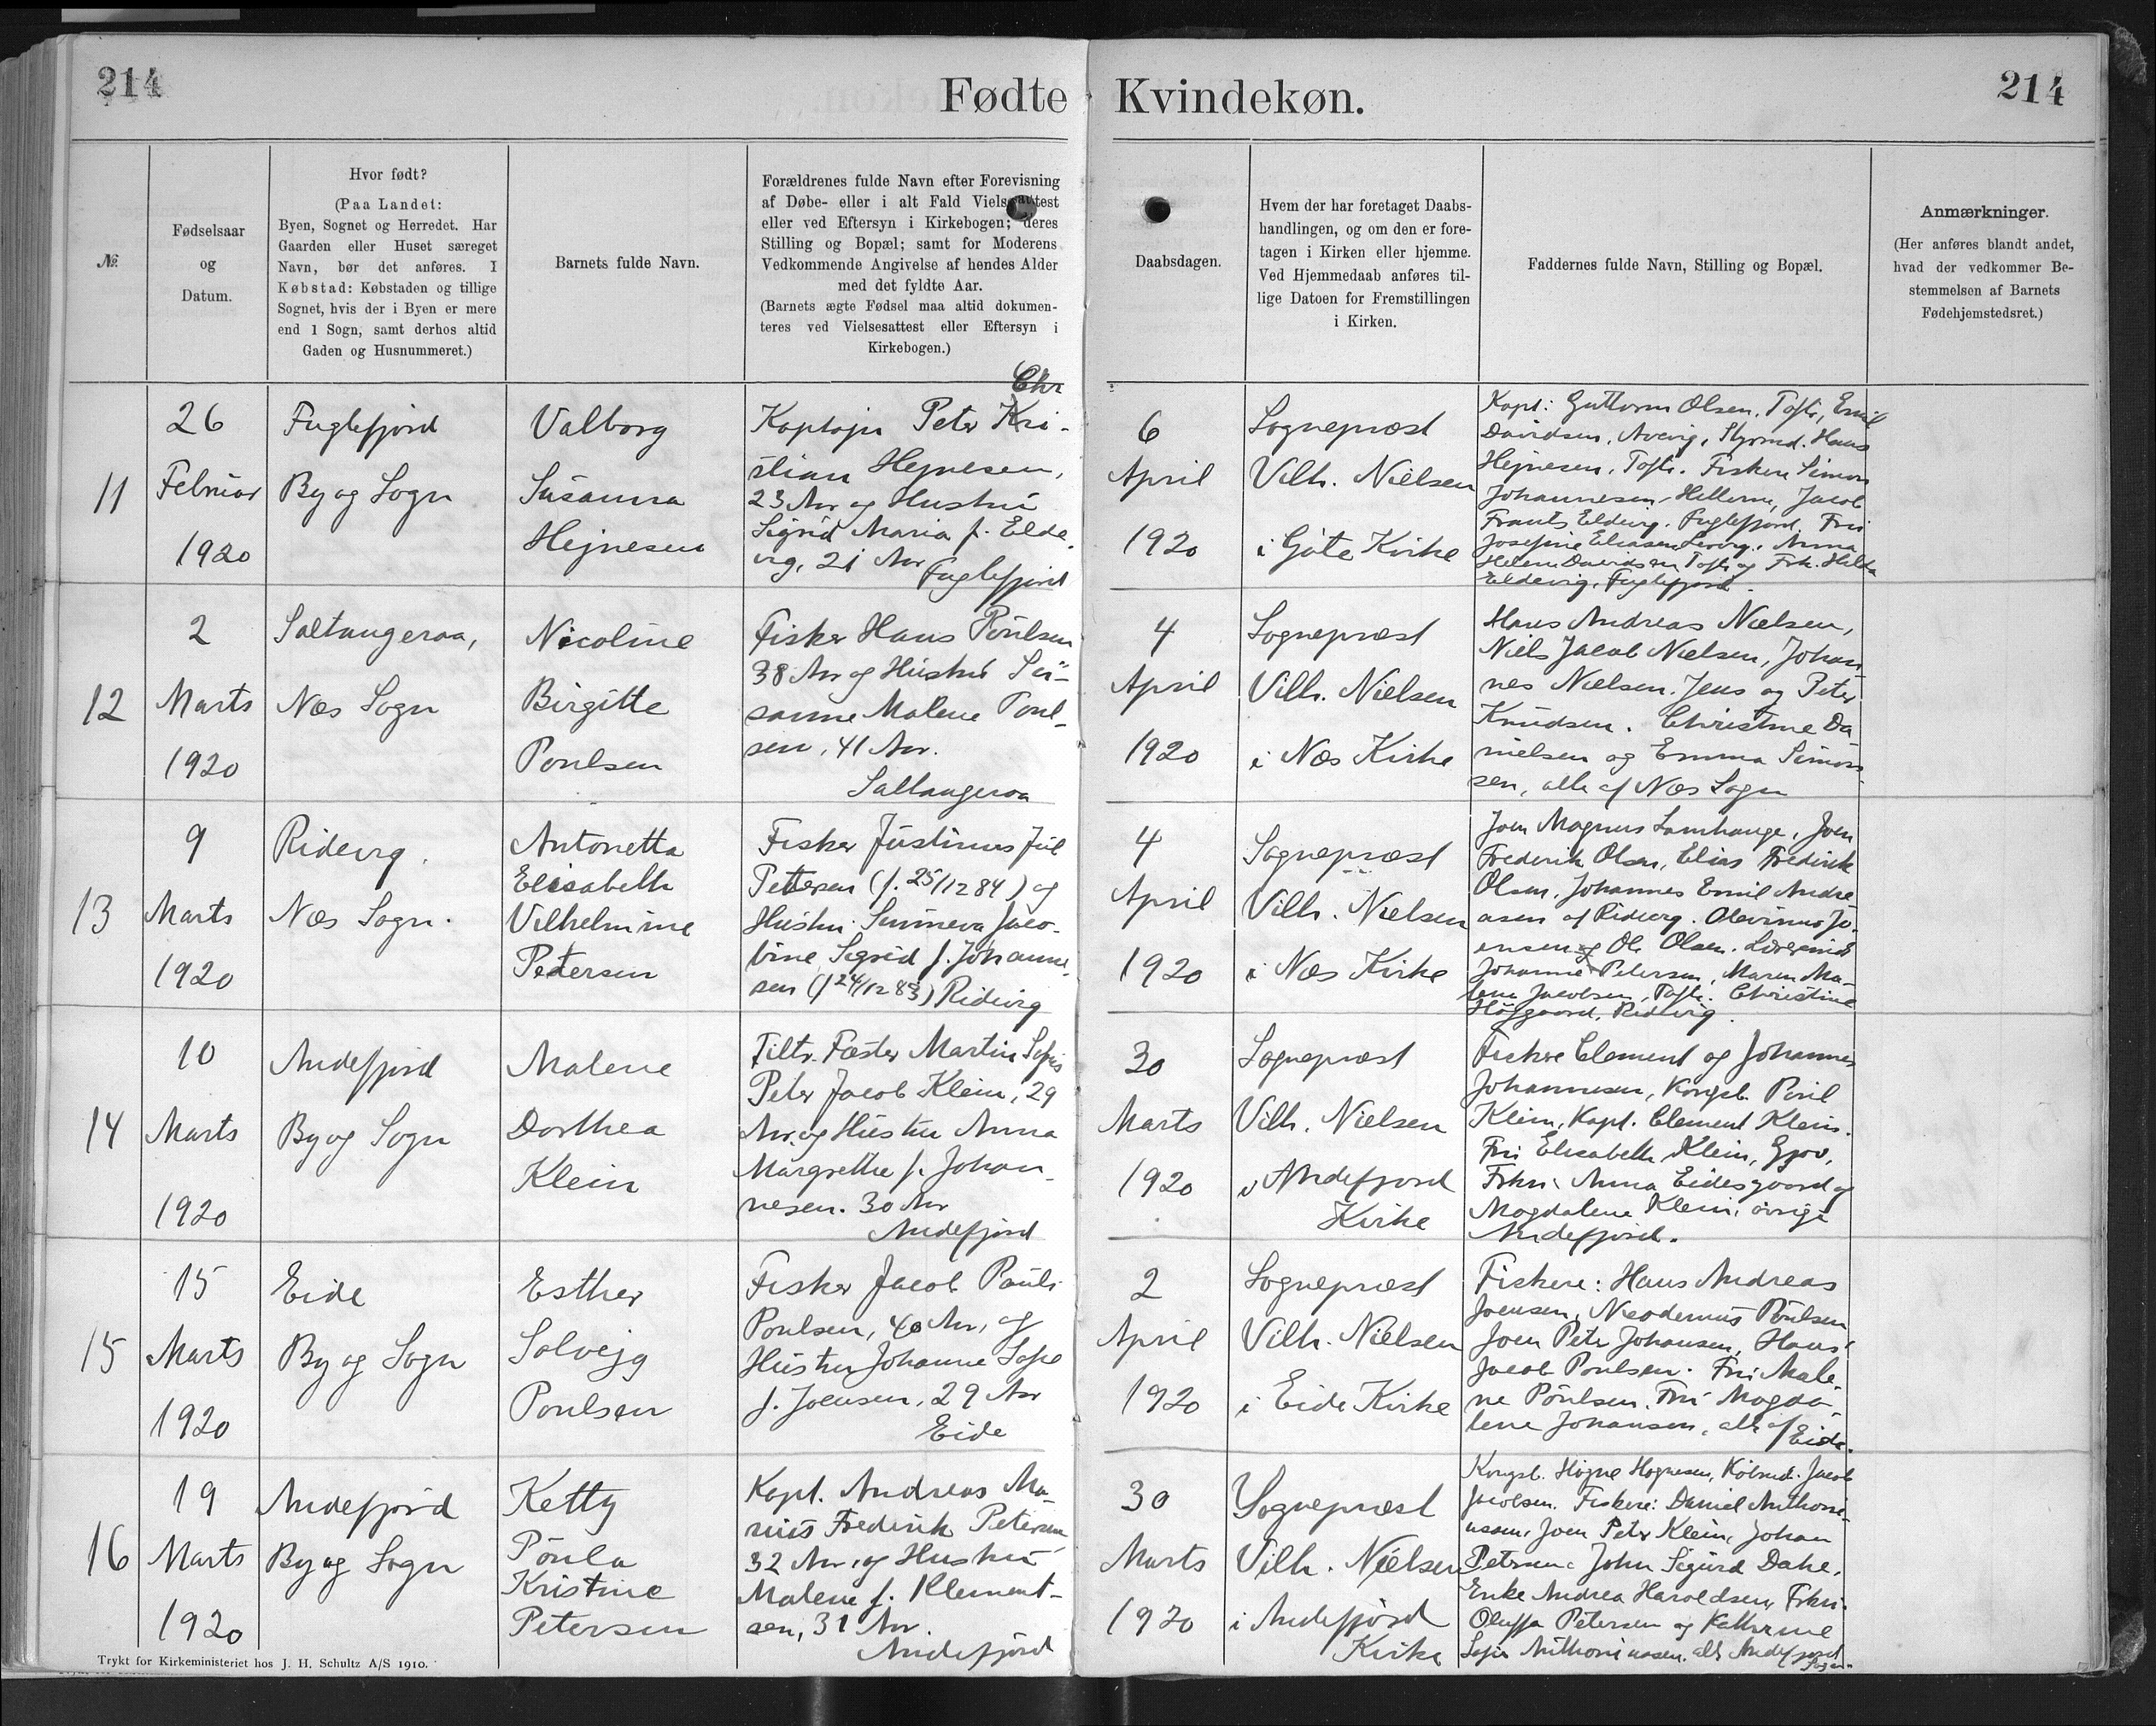 214
Fødte Kvindekøn.
214
№
Fødselsaar
og
Datum.
Hvor født?
(Paa Landet:
Byen, Sognet og Herredet. Har
Gaarden eller Huset særeget
Navn, bør det anføres. I
Købstad: Købstaden og tillige
Sognet, hvis der i Byen er mere
end 1 Sogn, samt derhos altid
Gaden og Husnummeret.)
Barnets fulde Navn.
Forældrenes fulde Navn efter Forevisning
af Døbe- eller i alt Fald Vielsesattest
eller ved Eftersyn i Kirkebogen; deres
Stilling og Bopæl; samt for Moderens
Vedkommende Angivelse af hendes Alder
med det fyldte Aar.
(Barnets ægte Fødsel maa altid dokumen-
teres ved Vielsesattest eller Eftersyn i
Kirkebogen.)
Daabsdagen.
Hvem der har foretaget Daabs-
handlingen, og om den er fore-
tagen i Kirken eller hjemme.
Ved Hjemmedaab anføres til-
lige Datoen for Fremstillingen
i Kirken.
Faddernes fulde Navn, Stilling og Bopæl.
Anmærkninger.
(Her anføres blandt andet,
hvad der vedkommer Be-
stemmelsen af Barnets
Fødehjemstedsret.)
11
26
Februar
1920
Fuglefjord
By og Sogn
Valborg
Susanna
Hejnesen
Chr
Kaptajn Peter Kri-
stian Hejnesen,
23 Aar og Hustru
Sigrid Maria f. Elde-
vig, 21 Aar
Fuglefjord
6
April
1920
Sognepræst
Vilh. Nielsen
i Göte Kirke
Kapt: Guttorm Olsen, Tofte, Emil
Davidsen, Styrmd. Hans
Hejnesen, Tofte. Fiskere Simon
Johannesen, Hellerne, Jacob
Frants Eldevig, Fuglefjord. Fru
Josefine Eliasen, Anna
Helene Davidsen Tofte og Frk. Hilda
Eldevig, Fuglefjord.
12
2
Marts
1920
Saltangeraa,
Næs Sogn
Nicoline
Birgitte
Poulsen
Fisker Hans Poulsen
38 Aar og Hustru Su-
sanne Malene Poul-
sen, 41 Aar.
Saltangeraa
4
April
1920
Sognepræst
Vilh. Nielsen
i Næs Kirke
Hans Andreas Nielsen,
Niels Jacob Nielsen, Johan-
nes Nielsen. Jens og Peter
Knudsen. Christine Da-
nielsen og Emma Simon-
sen, alle af Næs Sogn
13
9
Marts
1920
Ridevig.
Næs Sogn.
Antonetta
Elisabeth
Vilhelmine
Petersen
Fisker Justinus Juul
Petersen (f. 25/12 84) og
Hustru Sunneva Jaco-
bine Sigrid f. Johanne-
sen (f 24/12 83) Ridevig
4
April
1920
Sognepræst
Vilh. Nielsen
i Næs Kirke
Joen Magnus Lamhauge, Joen
Frederik Olsen, Elias Frederik
Olsen, Johannes Emil Andre-
asen af Ridevig. Olevinus Jo-
ensen og Ole Olsen.
Johanne Petersen, Maren Ma-
lene Jacobsen, Tofte. Christine
Höjgaard, Ridevig.
14
10
Marts
1920
Andefjord
By og Sogn
Malene
Dorthea
Klein
Filtr. Fæster Martin Sofus
Peter Jacob Klein, 29
Aar og Hustru Anna
Margrethe f. Johan-
nesen. 30 Aar
Andefjord
30
Marts
1920
Sognepræst
Vilh. Nielsen
i Andefjord
Kirke
Fiskere Clement og Johannes
Johannesen, Kongsb. Poul
Klein, Kapt. Clement Klein.
Fru Elisabeth Klein, Gjov,
Frkn. Anna Eidesgaard og
Magdalene Klein, övrige
Andefjord.
15
15
Marts
1920
Eide
By og Sogn
Esther
Solvejg
Poulsen
Fisker Jacob Pauli
Poulsen, 40 Aar, og
Hustru Johanne Sofie
f. Joensen, 29 Aar
Eide
2
April
1920
Sognepræst
Vilh. Nielsen
i Eide Kirke
Fiskere: Hans Andreas
Joensen, Nicodemus Poulsen
Joen Peter Johansen, Hans
Jacob Poulsen. Fru Male-
ne Poulsen. Fru Magda-
lene Johansen, alle af
Eide.
16
19
Marts
1920
Andefjord
By og Sogn
Ketty
Poula
Kristine
Petersen
Kapt. Andreas Ma-
rius Frederik Petersen
32 Aar, og Hustru
Malene f. Klement-
sen, 31 Aar.
Andefjord
30
Marts
1920
Sognepræst
Vilh. Nielsen
i Andefjord
Kirke
Kongsb. Högne Hognesen, Köbmd. Jacob
Jacobsen. Fiskere: Daniel Anthoni-
ussen, Joen Peter Klein, Johan
Petersen. John Sigurd Dahl.
Enke Andrea Haroldsen, Frkn.
Oluffa Petersen og Kathrine
Sofie Anthoniussen, alle Andefjord
Sogn.
Trykt for Kirkeministeriet hos J. H. Schultz A/S 1910.